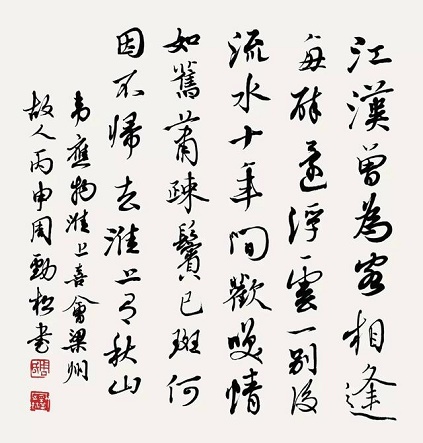 江漢曾為客相逢
每醉還浮雲一别後
流水十年間歡咲情
如舊蕭疎鬢已斑何
因不歸去淮上有秋山
韋應物淮上喜會梁州
故人丙申周勁松書